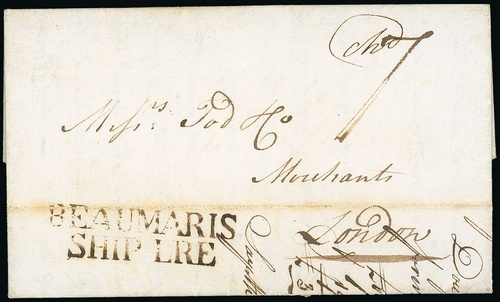 Chd
7
Messrs. Tod & Co
Merchants
London
BEAUMARIS
SHIP LRE